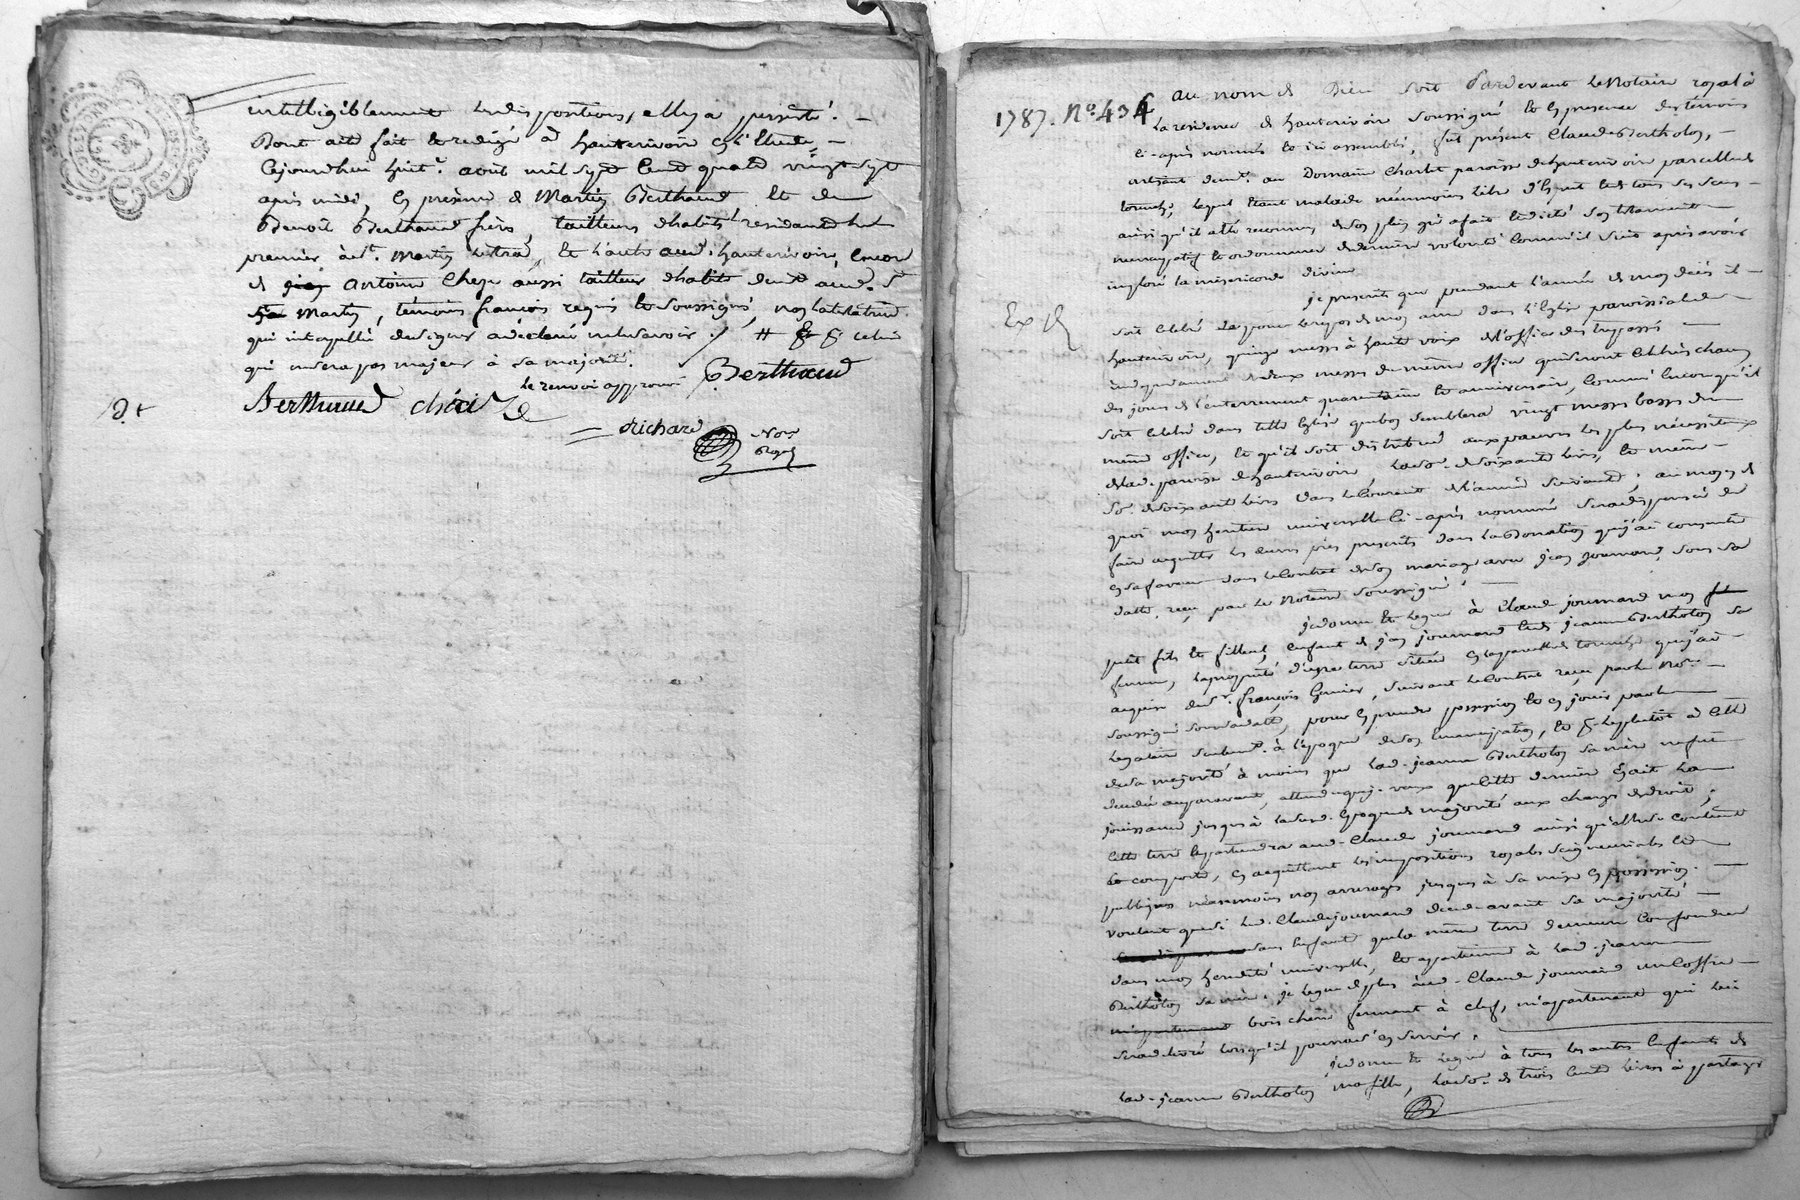 intelligiblement les dispositions, elle y a persisté. —
Dont acte fait et redigé à hauterivoir en l'Etude, —
Cejourdhui huit août mil sept Cent quatre vingt sept
après midi, en présence de Martin Berthaud et de
Benoit Berthaud frère, tailleurs dhabits residants le
premier à St. Martin Lestra, et l'autre aud. hauterivoir, encor
de Antoine Cheze aussi tailleur dhabits demt. aud. St
Martin, témoins françois requis et soussignés, non la testatrice
qui interpellée de signer a déclaré ne le savoir ./. # & celui
qui ne sera pas majeur à sa majorité.
le renvoi approuvé Berthaud
Berthaud chéize
Richard Nore
Royal
1787. No. 434
au nom de Dieu soit Pardevant le Notaire royal à
la residence de hauterivoir soussigné et en presence des témoins
ci-après nommés et ici assemblés, fut présent Claude Bertholon, —
artisant demt. au Domaine Charlet paroisse de hauterivoir parcelle de
, lequel étant malade néanmoins libre d'esprit et de tous ses sens —
ainsi qu'il a été reconnu, de son plein gré a fait et dicté son testament
nuncupatif et ordonnance de derniere volonté comme il suit après avoir
imploré la misericorde divine
je prescris que pendant l'année de mon décès il —
Exp
soit célébré pour le repos de mon ame dans l'Eglise paroissiale de —
hauterivoir, quinze messes à haute voix de l'office des trépassés —
independament de deux messes du même office qui seront célébrées chacun
des jours de l'enterrement quarantaine et anniversaire, comme encor qu'il
soit célébré dans telle Eglise que bon semblera vingt messes basses du
même office, et qu'il soit distribué aux pauvres les plus nécessiteux
de lad. paroisse de hauterivoir la so. de soixante livres, et même
so. de soixante livres dans le courant de l'année suivante, au moyen de
quoi mon héritiere universelle ci-après nommée sera dispensée de
faire acquitter les prescrits dans la Donation que j'ai consentie
en sa faveur dans le Contrat de son mariage avec jean journand, sous sa
datte, reçu par le Notaire soussigné. —
je donne et legue à Claude journand mon
petit fils et filleul, enfant de jean journand et de jeanne Bertholon sa
femme, la propriété d'une terre située que j'ai —
acquise de sr. françois Garnier, suivant le Contrat reçu par le Nore. —
soussigné sous sa datte, pour en prendre possession et en jouir par le
legataire seulemt. à l'époque de son emancipation, et à celle
de sa majorité à moins que lad. jeanne Bertholon sa mère ne fut
decedée auparavant, attendu que je veux que cette derniere en ait la
jouissance jusques à lad. époque de majorité aux charges de droit;
cette terre appartiendra aud. Claude journand ainsi qu'elle se contient
et comporte, en acquittant les impositions royales seigneuriales et
publiques néanmoins non arreragés jusques à sa mise en possession. —
voulant que si led. Claude journand décede avant sa majorité —
sans enfants que la même terre demeure confondue
dans mon heredité universelle, et appartienne à lad. jeanne —
Bertholon sa mère. je legue de plus aud. Claude journand un coffre —
bois chêne fermant à clef, m'appartenant qui lui
sera delivré lorsqu'il pourra s'en servir.
je donne et legue à tous les autres Enfants de
lad. jeanne Bertholon ma fille, la so. de trois Cents livres à partager